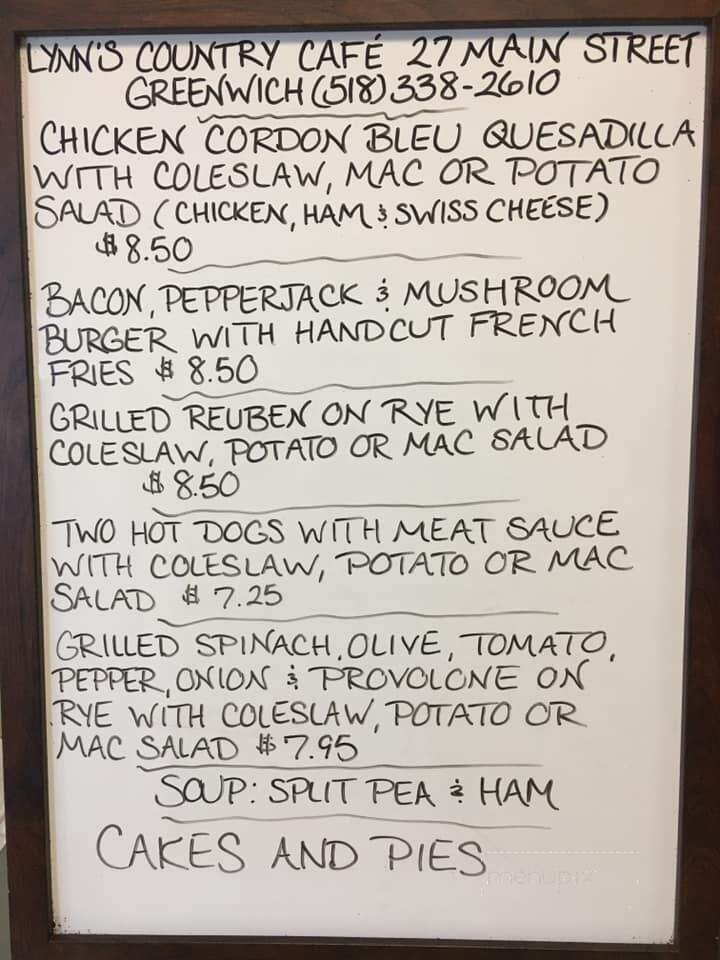 LYNN'S COUNTRY CAFÉ 27 MAIN STREET
GREENWICH (518) 338-2610
CHICKEN CORDON BLEU QUESADILLA
WITH COLESLAW, MAC OR POTATO
SALAD (CHICKEN, HAM & SWISS CHEESE)
$8.50
BACON, PEPPERJACK & MUSHROOM
BURGER WITH HANDCUT FRENCH
FRIES $ 8.50
GRILLED REUBEN ON RYE WITH
COLESLAW, POTATO OR MAC SALAD
$ 8.50
TWO HOT DOGS WITH MEAT SAUCE
WITH COLESLAW, POTATO OR MAC
SALAD $ 7.25
GRILLED SPINACH, OLIVE, TOMATO,
PEPPER, ONION & PROVOLONE ON
RYE WITH COLESLAW, POTATO OR
MAC SALAD $7.95
SOUP: SPLIT PEA & HAM
CAKES AND PIES
menupix